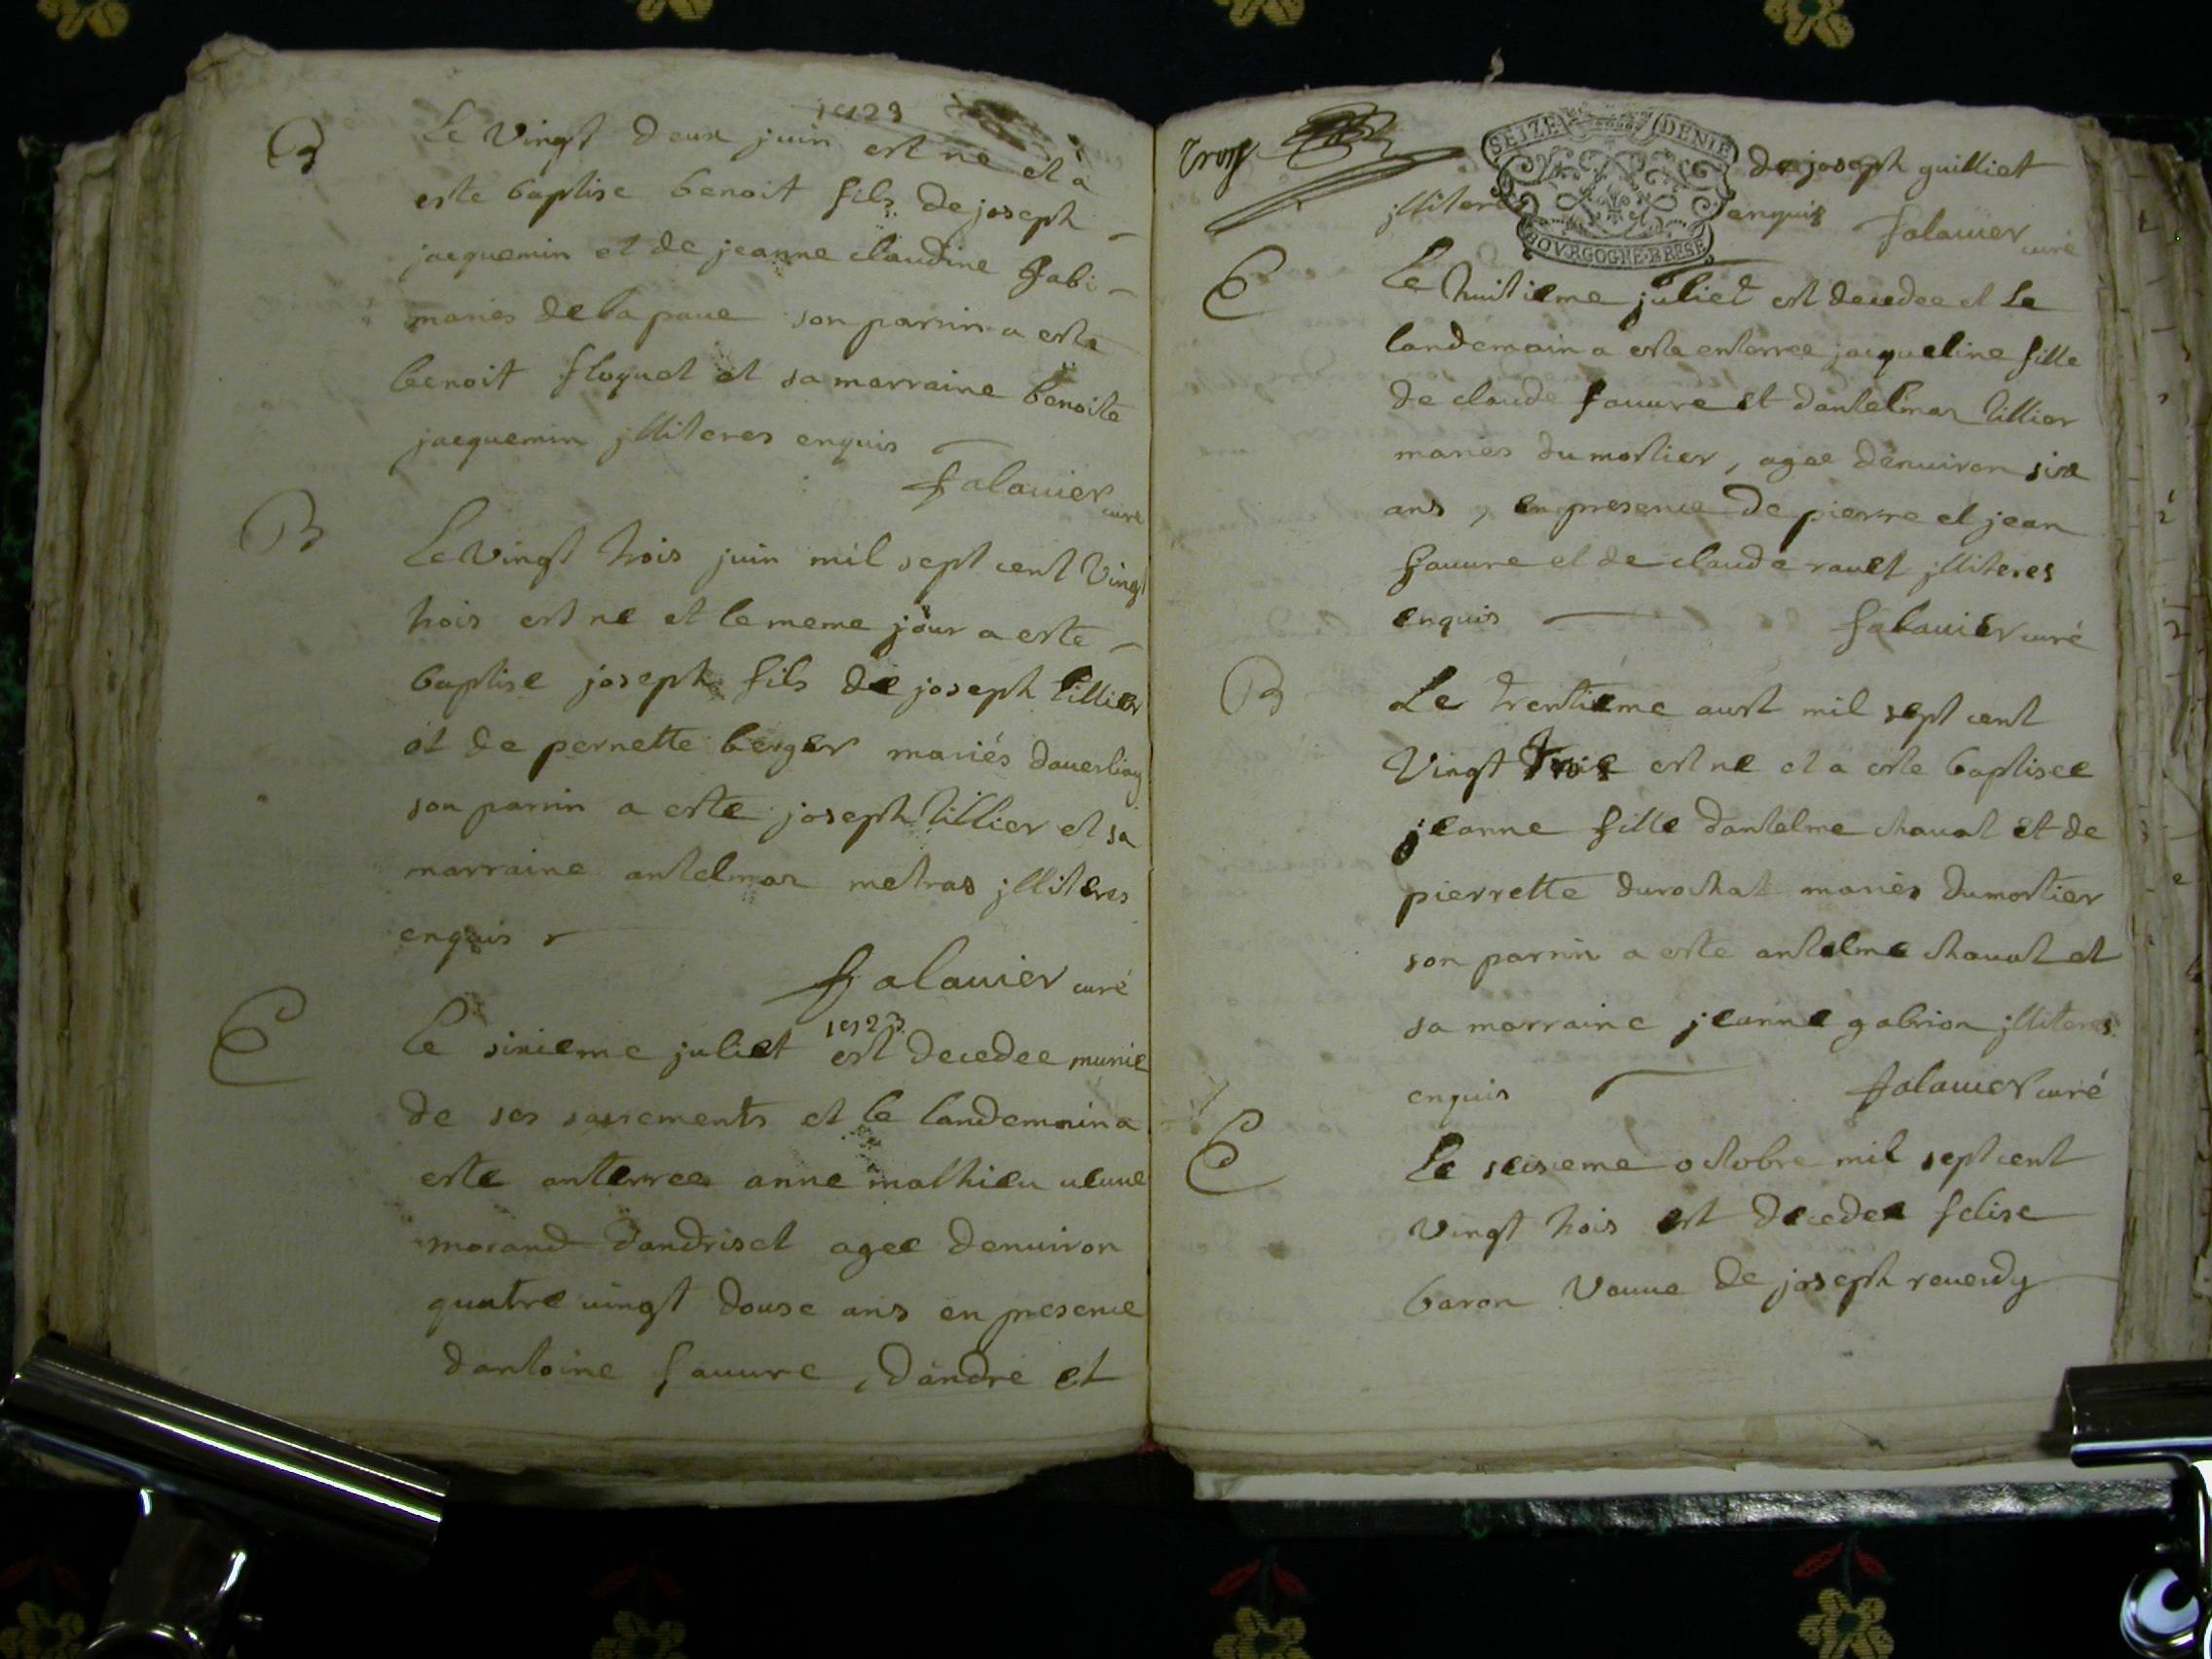 1723
B
Le Vingt deux juin est ne et a
este baptise benoit fils de joseph
jacquemin et de jeanne claudine fabi
mariés de la paue son parrin a este
benoit floquet et sa marraine benoite
jacquemin jlliteres enquis
falauier curé
B
Le Vingt trois juin mil sept cent Vingt
trois est ne et le meme jour a este
baptise joseph fils de joseph tillier
et de pernette berger mariés dauerliay
son parrin a este joseph tillier et sa
marraine antelmaz metras jlliteres
enquis
falauier curé
1723
E
Le sixieme juliet est decedee munie
de ses sacrements et le landemain a
este anterree anne mathieu ueuue
morand dandriset agee denuiron
quatre uingt douse ans en presence
dantoine fauure, dandre et
Troys
SEIZE DENIE
BOVRGOGNE·BRESE
de joseph guilliet
jlliteres enquis falauier curé
E
Le huitieme juliet est decedee et le
landemain a este enterree jacqueline fille
de claude fauure et dantelmaz tillier
mariés du mortier, agee denuiron six
ans, en presence de pierre et jean
fauure et de claude rauet jlliteres
enquis falauier curé
B
Le trentieme aust mil sept cent
Vingt Trois est ne et a este baptisee
jeanne fille dantelme chauat et de
pierrette durochat mariés du mortier
son parrin a este antelme chauat et
sa marraine jeanne gabrion jlliteres
enquis falauier curé
E
Le seisieme octobre mil sept cent
Vingt trois est decedee felise
baron Veuue de joseph reuerdy